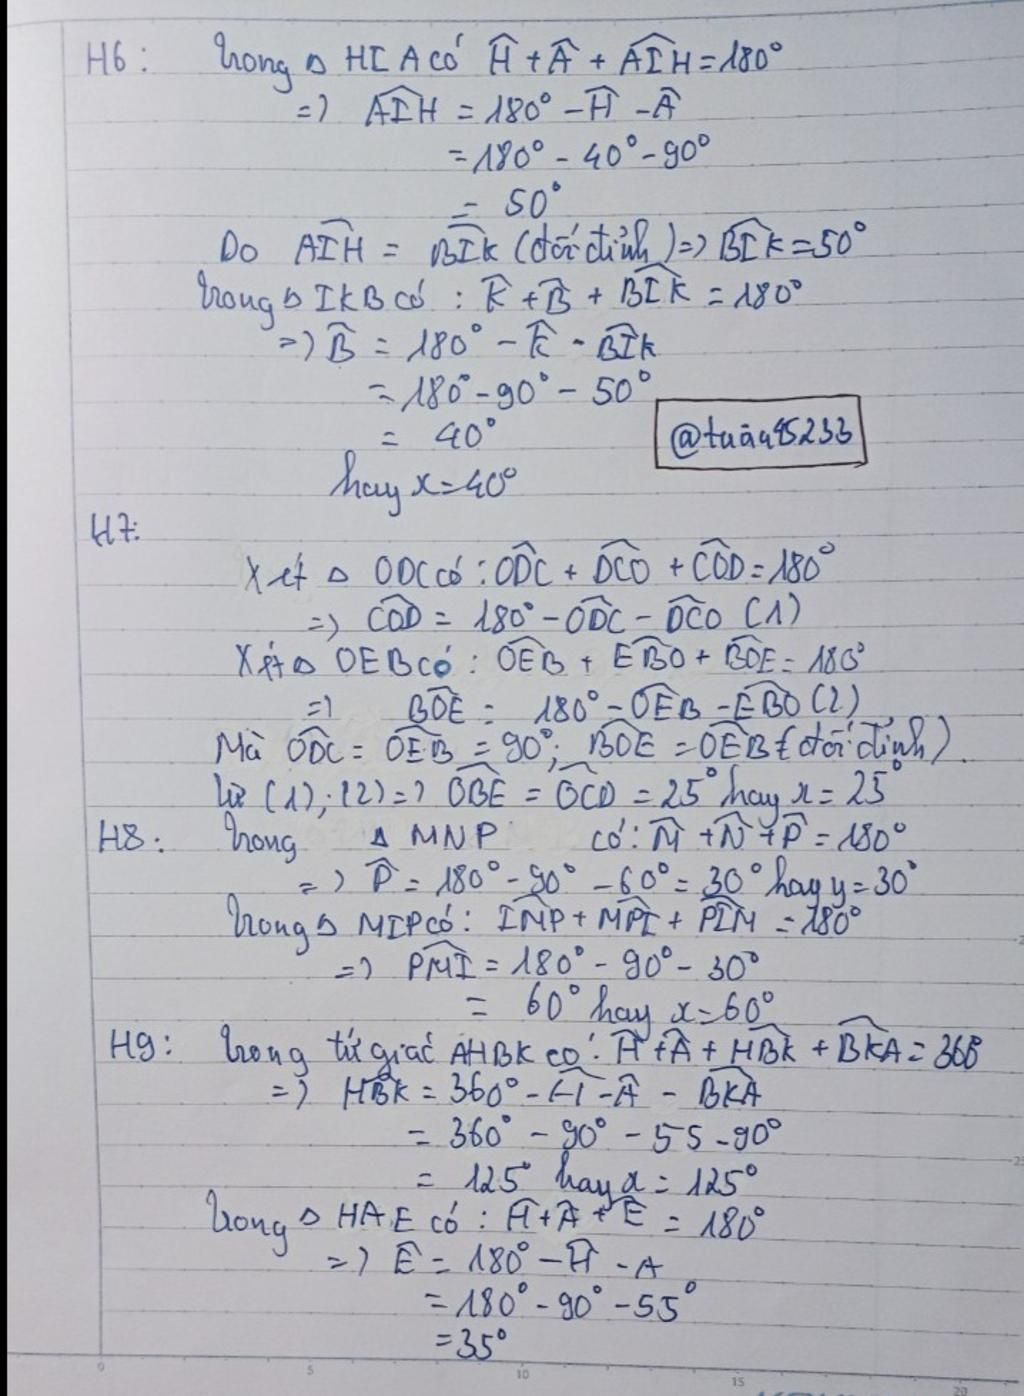 H6: Trong Δ HIA có Ĥ + Â + AIH = 180°
=> AIH = 180° - Ĥ - Â
= 180° - 40° - 90°
= 50°
Do AIH = BIK (đối đỉnh) => BIK = 50°
Trong Δ IKB có: K̂ + B̂ + BIK = 180°
=> B̂ = 180° - K̂ - BIK
= 180° - 90° - 50°
= 40°
@tuấn45233
hay x = 40°
H7:
Xét Δ ODC có: ODC + DCO + COD = 180°
=> COD = 180° - ODC - DCO (1)
Xét Δ OEB có: OEB + EBO + BOE = 180°
=> BOE = 180° - OEB - EBO (2)
Mà ODC = OEB = 90°; BOE = OEB (đối đỉnh)
Từ (1), (2) => OBE = OCD = 25° hay x = 25°
H8: Trong Δ MNP có: M̂ + N̂ + P̂ = 180°
=> P̂ = 180° - 90° - 60° = 30° hay y = 30°
Trong Δ MIP có: IMP + MPI + PIM = 180°
=> PMI = 180° - 90° - 30°
= 60° hay x = 60°
H9: Trong tứ giác AHBK có: Ĥ + Â + HBK + BKA = 360
=> HBK = 360° - Ĥ - Â - BKA
= 360° - 90° - 55 - 90°
= 125° hay x = 125°
Trong Δ HAE có: Ĥ + Â + Ê = 180°
=> Ê = 180° - Ĥ - A
= 180° - 90° - 55°
= 35°
0 5 10 15 20